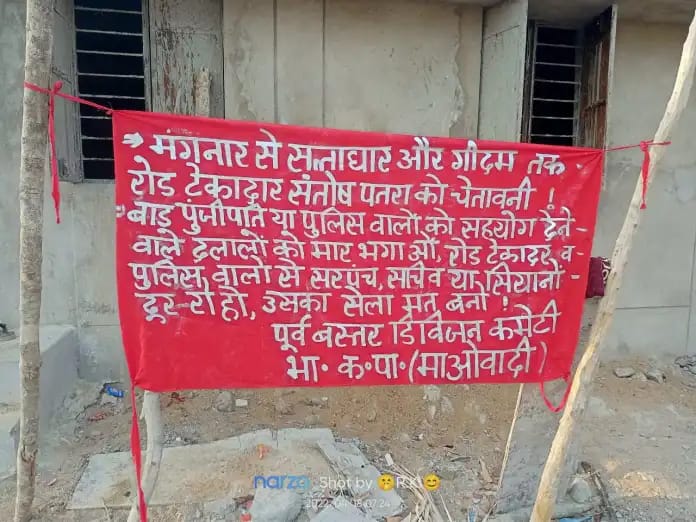 → मंगनार से सातधार और गीदम तक -
रोड़ टेकादार संतोष पतरा को चेतावनी !
बाड़ पुंजीपति या पुलिस वालों को सहयोग देने -
वाले दलालों को मार भगाओ, रोड़ टेकादार, व -
पुलिस वालों से सरपंच, सचिव या सियानों -
दूर रहो, उसका सेला मत बनो !
पूर्व बस्तर डिविजन कमेटी
भा. क. पा. (माओवादी)
narzo
Shot by RK
2022-04-18 07:24